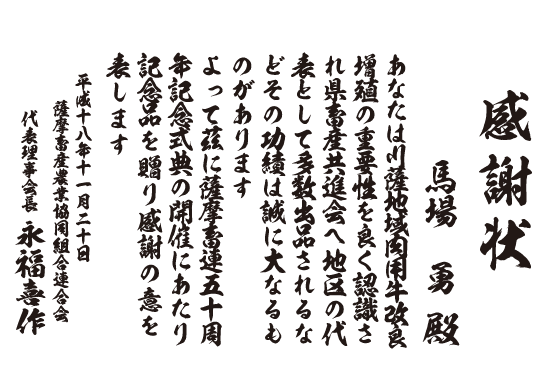 感謝状
馬場 勇 殿
あなたは川薩地域肉用牛改良
増殖の重要性を良く認識さ
れ県畜産共進会へ地区の代
表として多数出品されるな
どその功績は誠に大なるも
のがあります
よって茲に薩摩畜連五十周
年記念式典の開催にあたり
記念品を贈り感謝の意を
表します
平成十八年十一月二十日
薩摩畜産農業協同組合連合会
代表理事会長 永福喜作